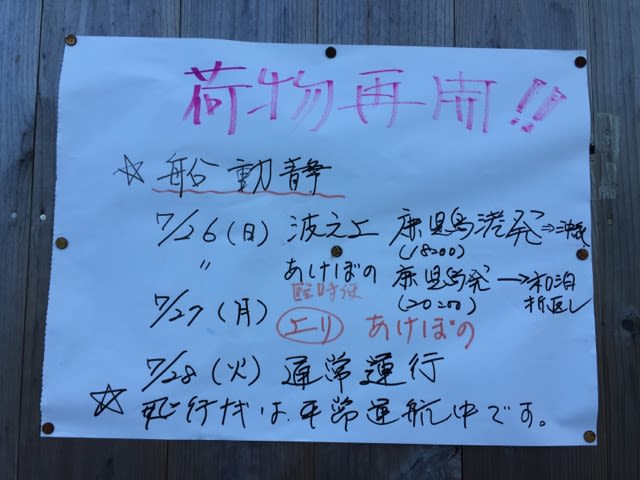 荷物再開!!
☆ 船動静
7/26(日) 波之上 鹿児島港発⇒沖縄
(18:00)
〃 あけぼの 鹿児島発→和泊
臨時便 (20:00) 折返し
7/27(月) エリ あけぼの
7/28(火) 通常運行
☆ 飛行機は、平常運航中です。